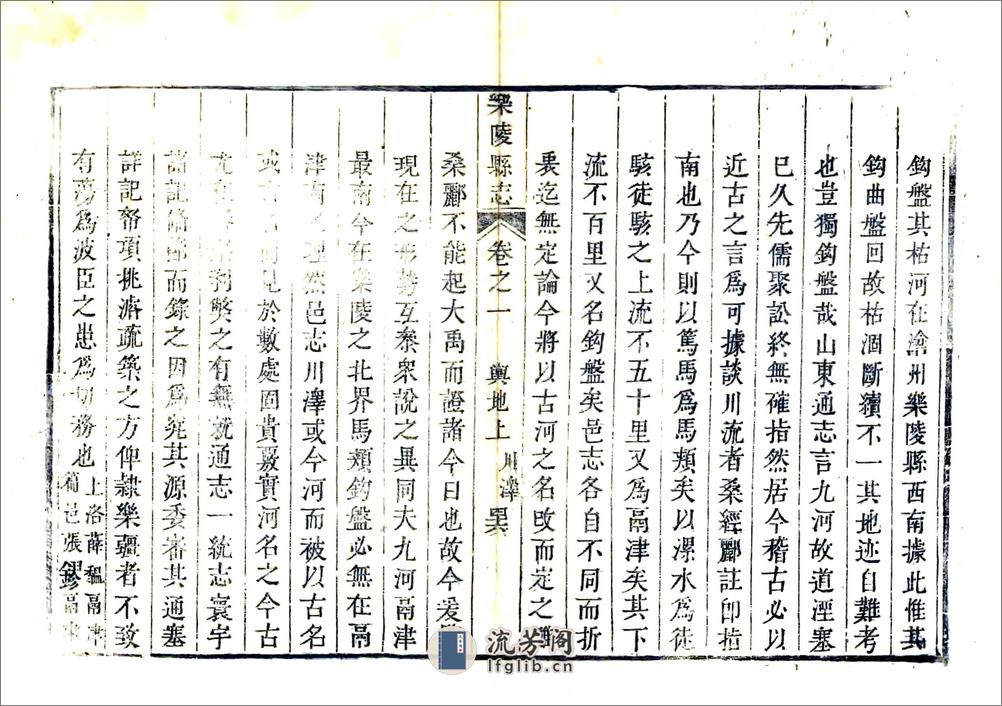 鈎盤其枯河在滄州樂陵縣西南據此惟其
鈎曲盤回故枯涸斷續不一其地迹自難考
也豈獨鈎盤哉山東通志言九河故道湮塞
已久先儒聚訟終無確指然居今稽古必以
近古之言爲可據談川流者桑經酈註卽指
南也乃今則以篤馬爲馬頰矣以漯水爲徒
駭徒駭之上流不五十里又爲鬲津矣其下
流不百里又名鈎盤矣邑志各自不同而折
衷迄無定論今將以古河之名攺而定之
桑酈不能起大禹而證諸今日也故今爰
現在之形勢互叅衆說之異同夫九河鬲津
最南今在樂陵之北界馬頰鈎盤必無在鬲
津南之理然邑志川澤或今河而被以古名
或古名而見於數處固貴覈實河名之今古
尤在利獘之有無就通志一統志寰宇
諸記條節而錄之因爲究其源委審其通塞
詳記幫項挑濬疏築之方俾隷樂疆者不致
有蕩爲波臣之患爲切務也
上洛薛 鬲津
邑張 鬲津
樂陵縣志
卷之一
輿地上
川澤
流芳阁
lfglib.cn